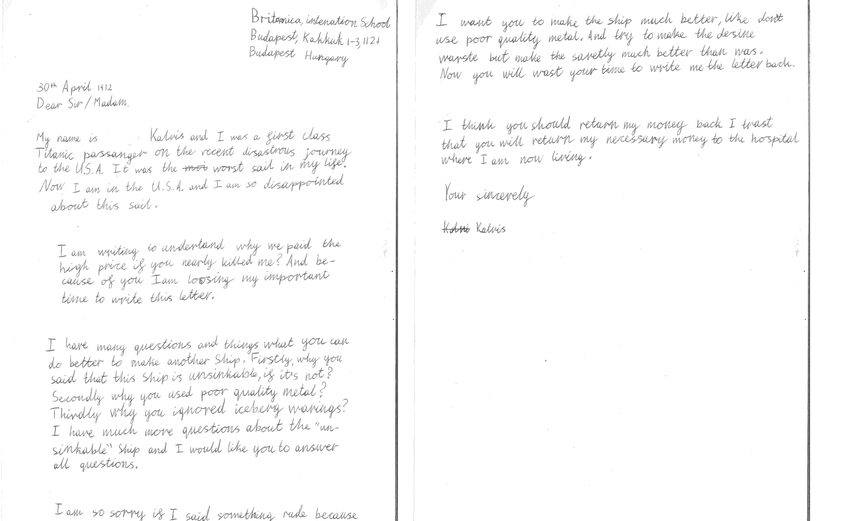 Britanica, intenation School
Budapest, Kakkuk 1-3, 1121
Budapest Hungary
30th April 1912
Dear Sir/Madam.
My name is Kalvis and I was a first class
Titanic passanger on the recent disastrous journey
to the U.S.A. It was the worst sail in my life.
Now I am in the U.S.A. and I am so disappointed
about this sail.
I am writing to understand why we paid the
high price if you nearly killed me? And be-
cause of you I am loosing my important
time to write this letter.
I have many questions and things what you can
do better to make another Ship. Firstly, why you
said that this Ship is unsinkable, if it's not?
Secondly why you used poor quality metal?
Thirdly why you ignored iceberg warings?
I have much more questions about the "un-
sinkable" Ship and I would like you to answer
all questions.
I am so sorry if I said something rude because
I want you to make the ship much better, like don't
use poor quality metal. And try to make the desine
warste but make the savetly much better than was.
Now you will wast your time to write me the letter back.
I think you should return my money back I trast
that you will return my necessary money to the hospital
where I am now living.
Your sincerely
Kalvis